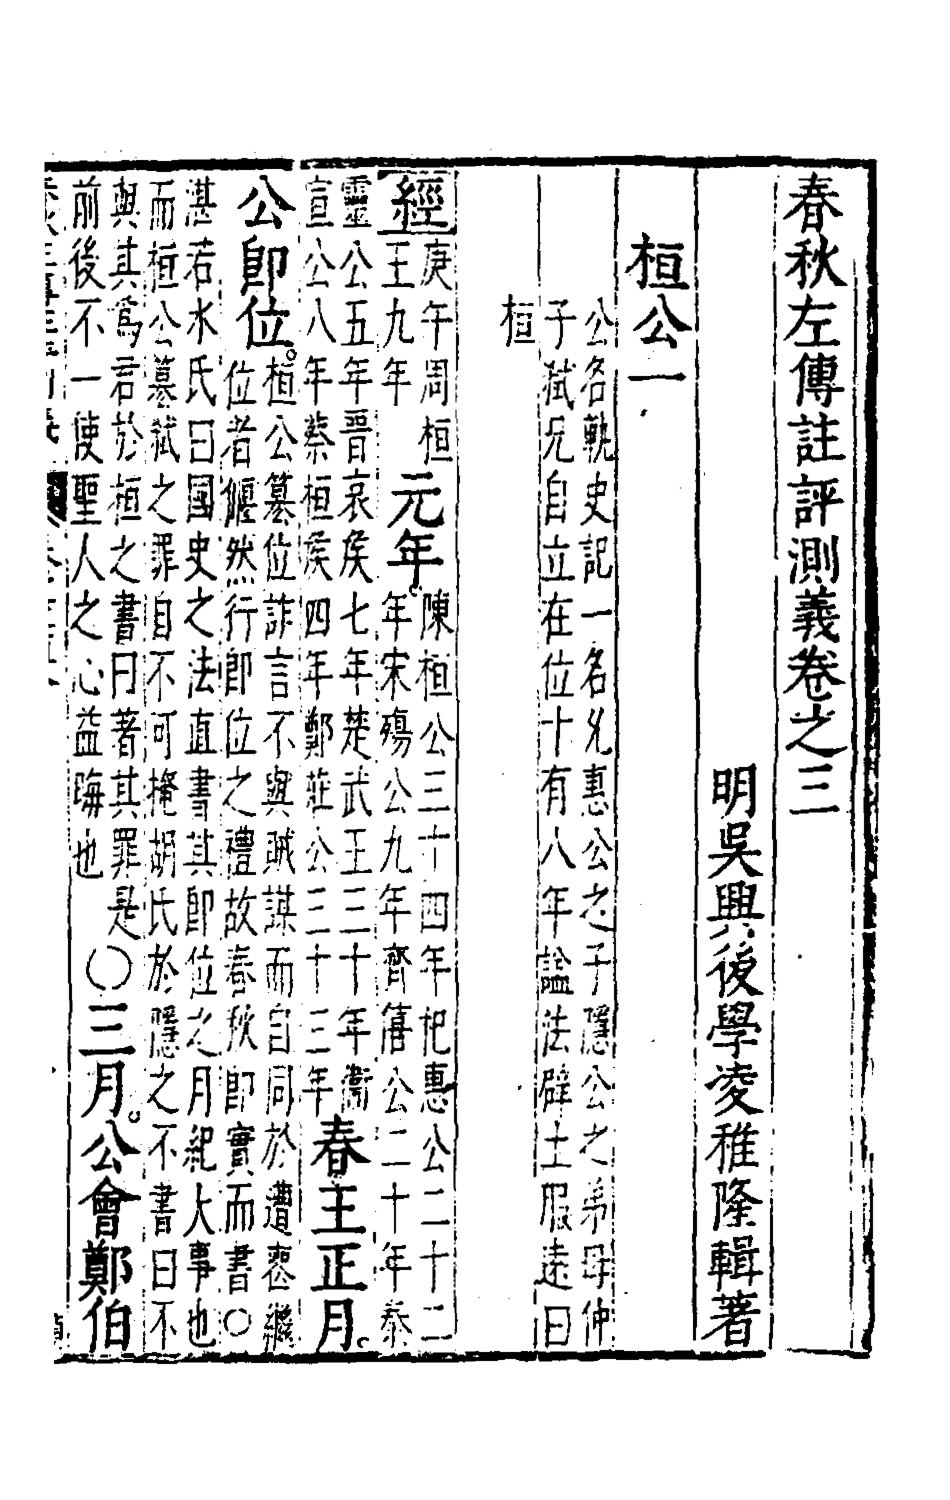 春秋左傳註評測義卷之三
明吳興後學凌稚隆輯著
桓公一
公名軌史記一名允惠公之子隱公之弟母仲
子弒兄自立在位十有八年謚法辟土服遠曰
桓
經
庚午周桓
王九年
元年。
陳桓公三十四年杞惠公二十二
年宋殤公九年齊僖公二十年秦
靈公五年晉哀侯七年楚武王三十年衛
宣公八年蔡桓侯四年鄭莊公三十三年
春王正月。
公即位。
桓公篡位詐言不與賊謀而自同於遭喪繼
位者偃然行即位之禮故春秋即實而書○
湛若水氏曰國史之法直書其即位之月紀大事也
而桓公篡弒之罪自不可掩胡氏於隱之不書曰不
與其爲君於桓之書曰著其罪是
前後不一使聖人之心益晦也
○三月。公會鄭伯